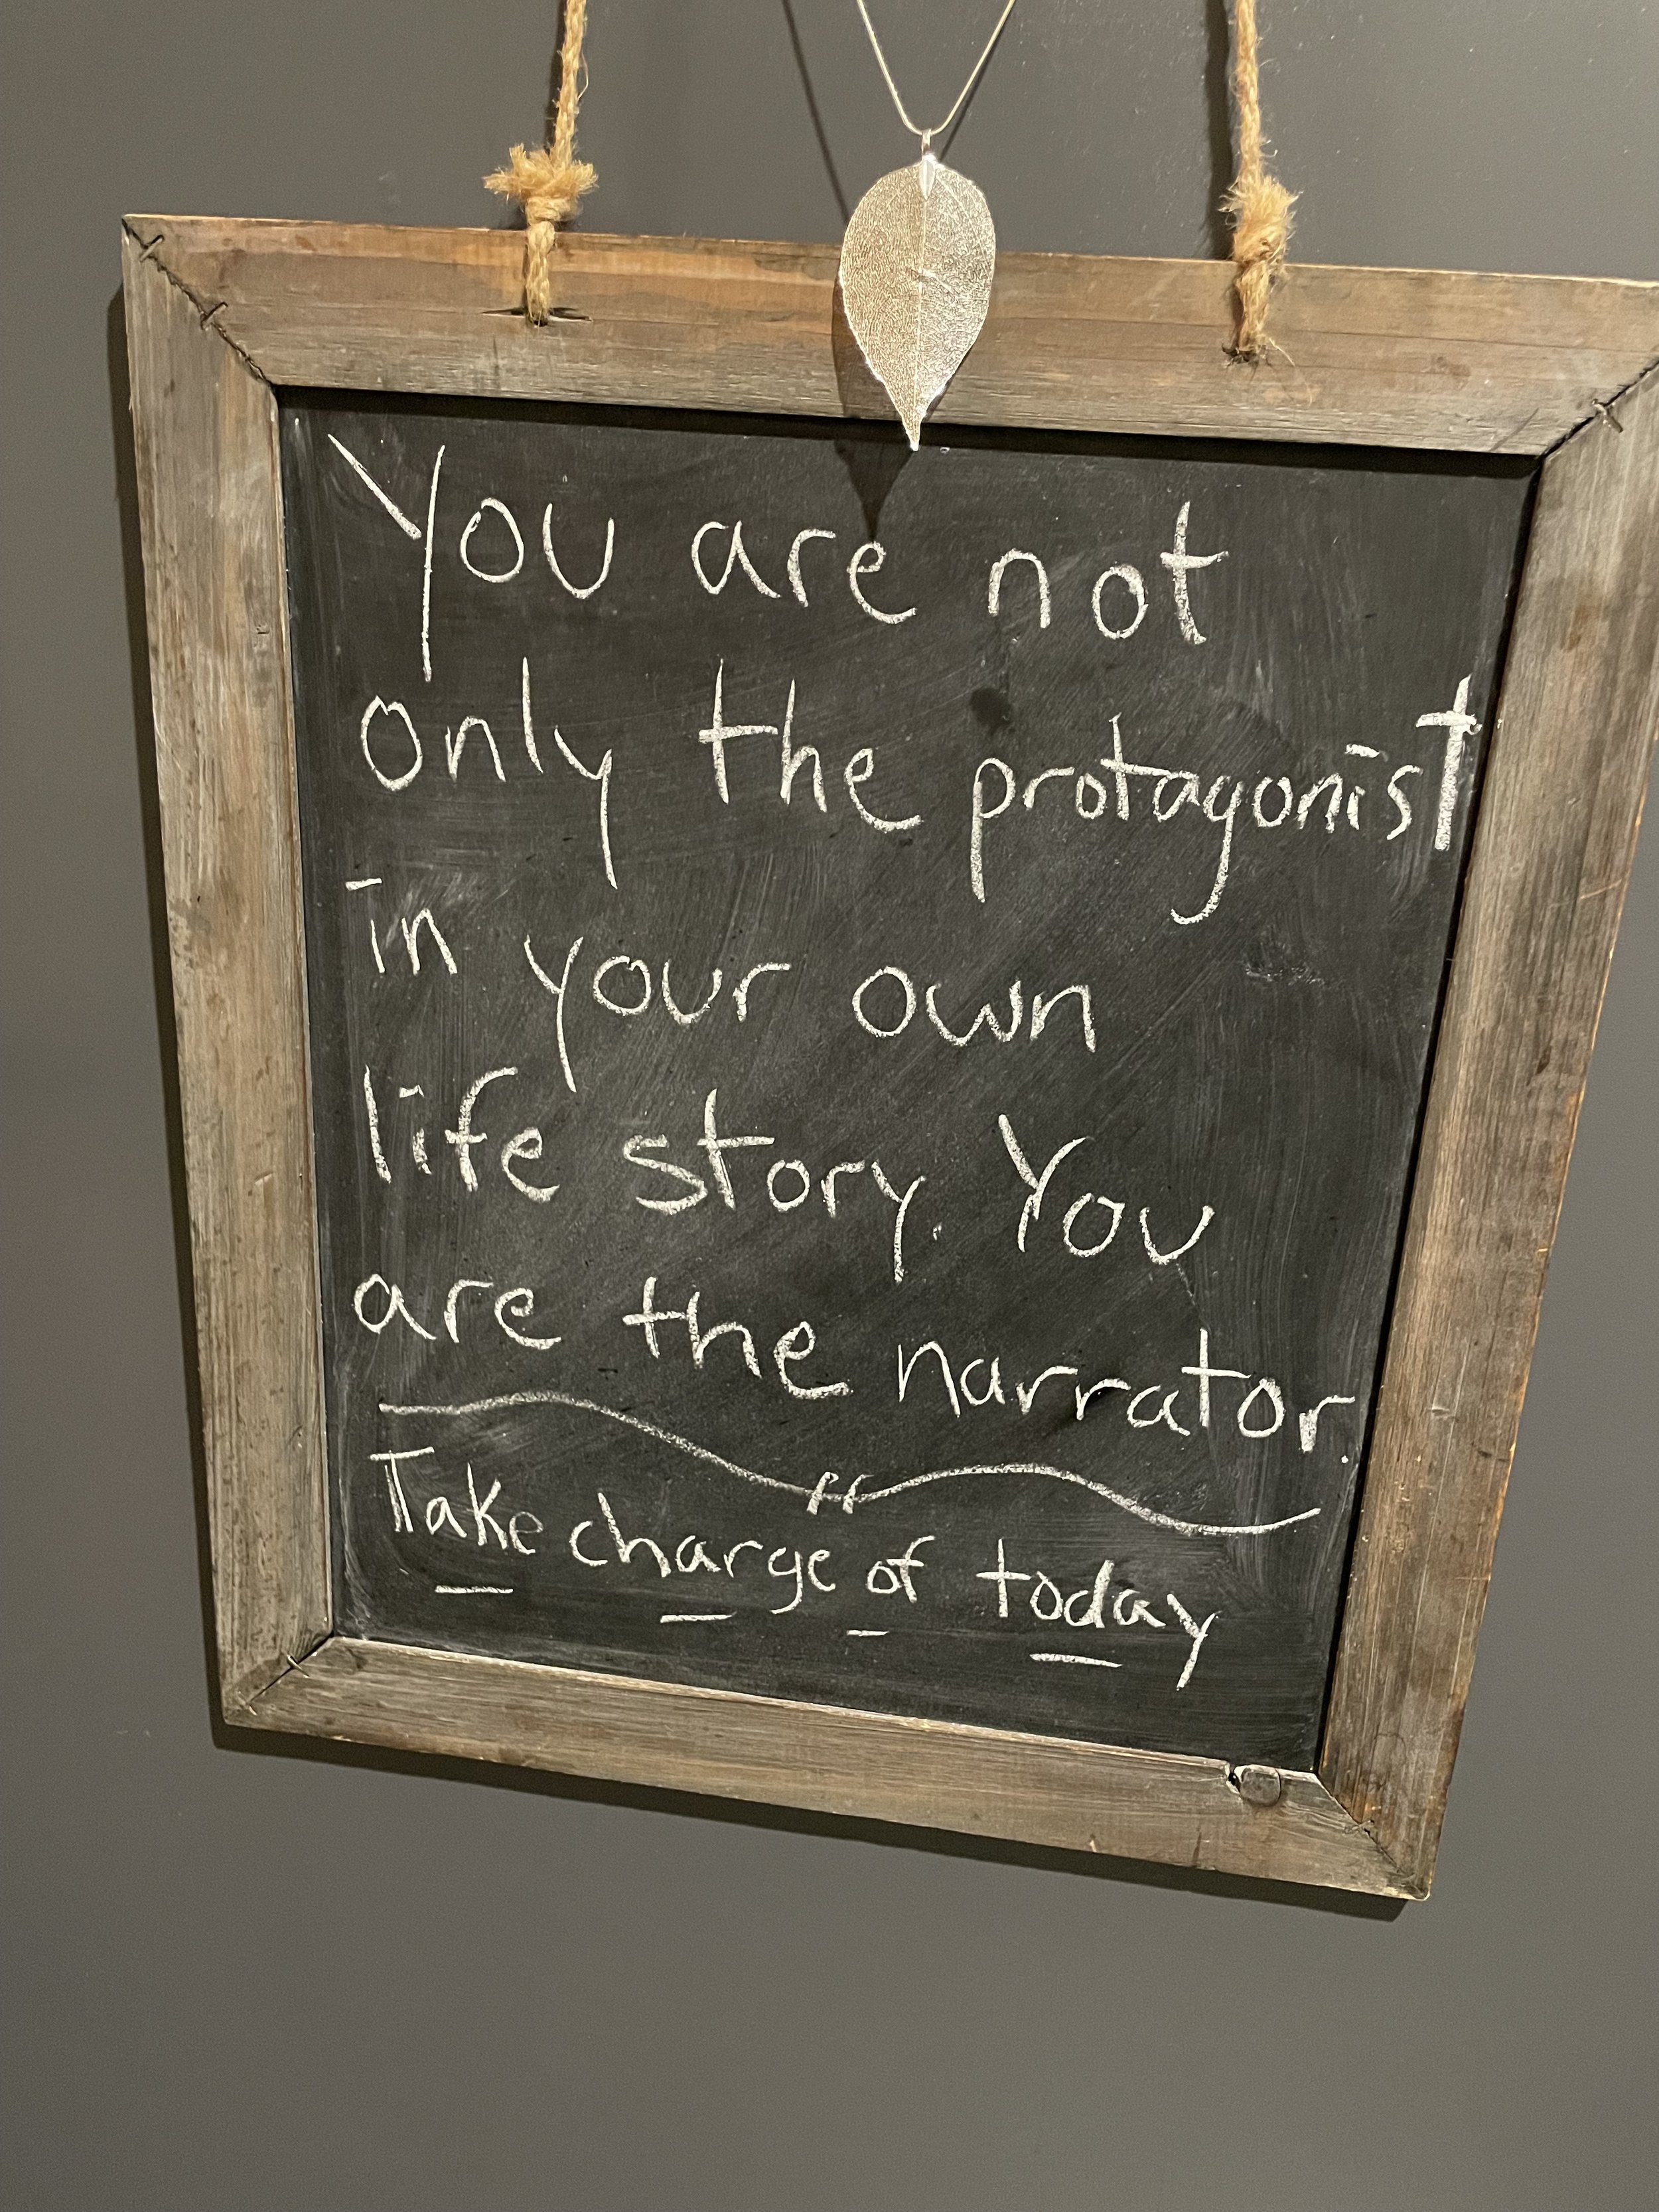 You are not
only the protagonist
in your own
life story. You
are the narrator.
Take charge of today